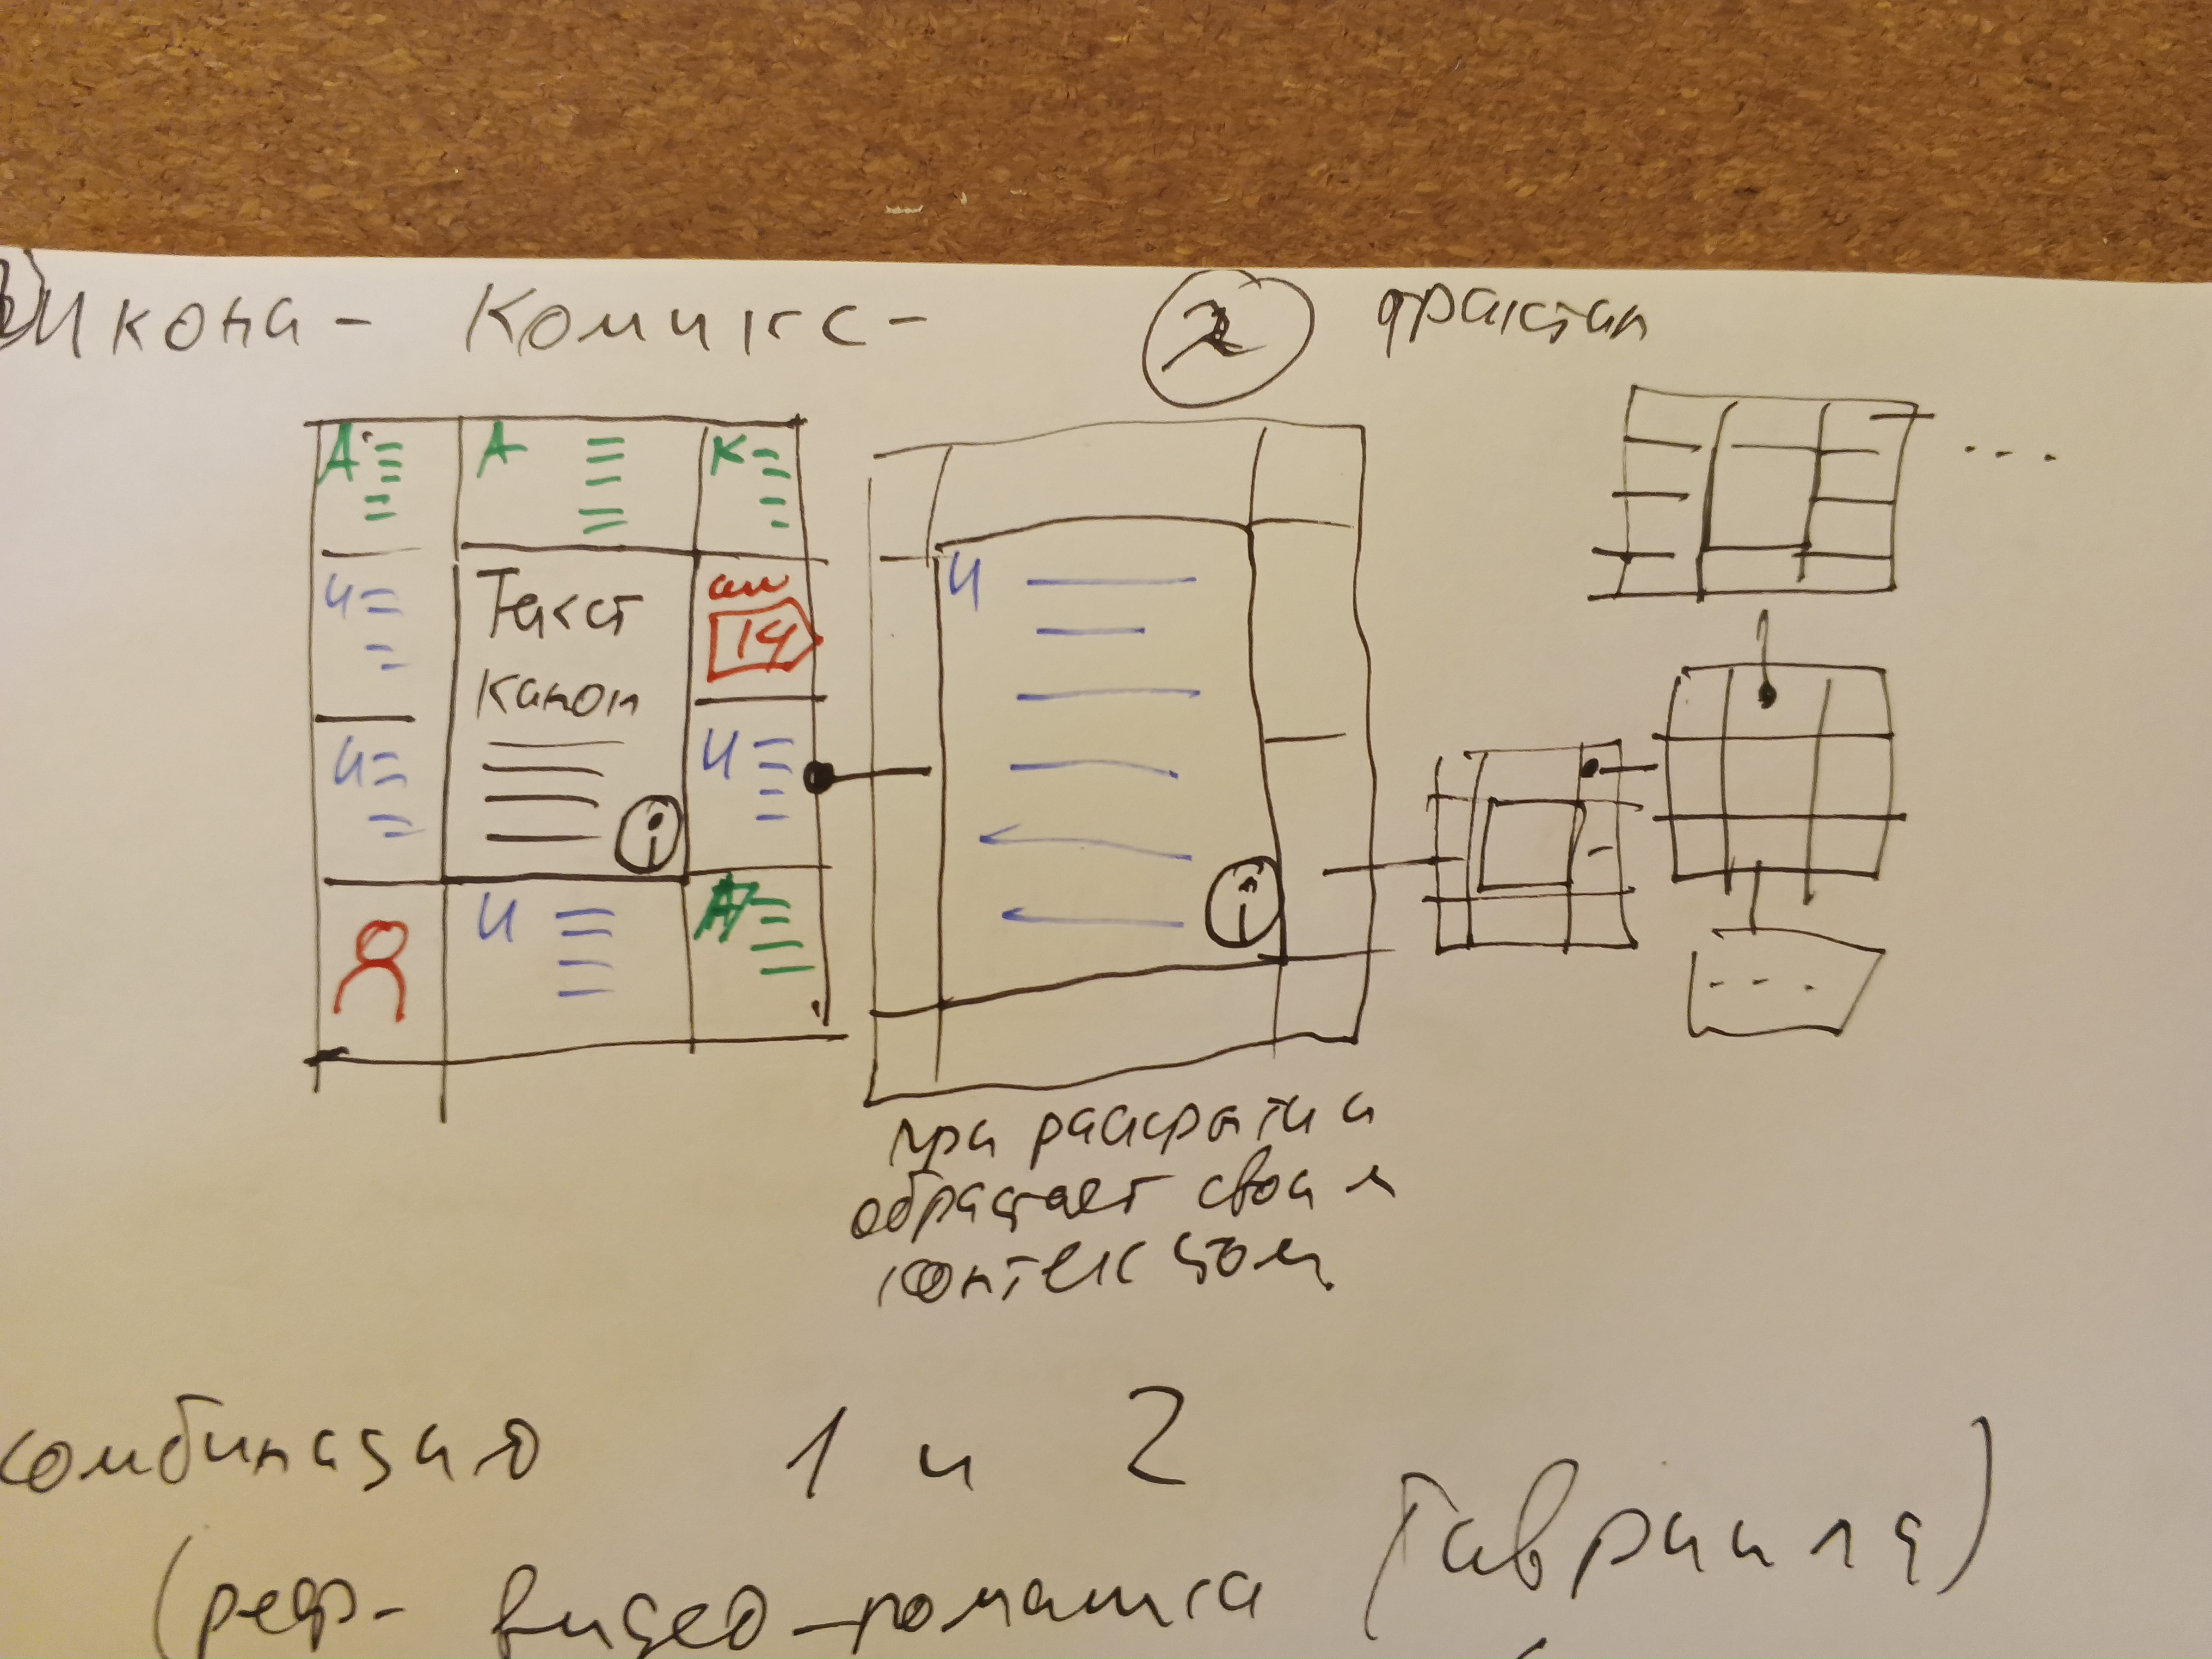 Икона - Комикс -
2
фрактал
А
А
К
И
Текст
канон
см
14
И
И
i
И
А
И
i
...
при раскрытии
обрастает своим
контекстом
комбинацию 1 и 2
(реф- видео-ромашка Гавриила)